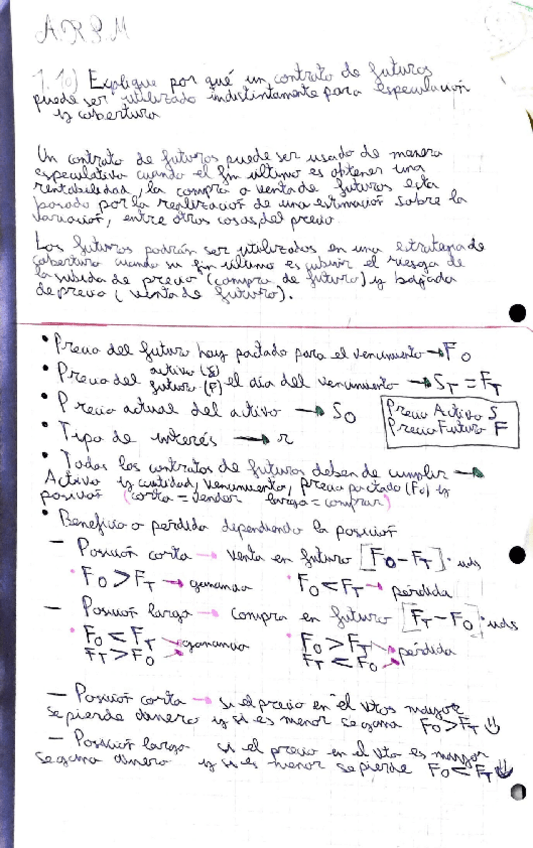 A.R.P.M
1.10) Explique por qué un contrato de futuros
puede ser utilizado indistintamente para especulación
y cobertura
Un contrato de futuros puede ser usado de manera
especulativa cuando el fin ultimo es obtener una
rentabilidad, la compra o venta de futuros esta
por la realización de una estimación sobre la
variación, entre otras cosas, del precio.
Los futuros podrán ser utilizados en una estrategia de
cobertura cuando su fin ultimo es cubrir el riesgo de
la subida de precio (compra de futuro) y bajada
de precio (venta de futuro).
• Precio del futuro hoy pactado para el vencimiento → F0
• Precio del activo (S) futuro (F) el día del vencimiento → ST = FT
• Precio actual del activo → S0
Precio Activo S
Precio Futuro F
• Tipo de interés → r
• Todos los contratos de futuros deben de cumplir →
Activo y cantidad, vencimiento, precio pactado (F0) y
posición (corta = vender larga = comprar)
• Beneficio o pérdida dependiendo la posición
— Posición corta → venta en futuro [F0 - FT] · uds
• F0 > FT → ganancia • F0 < FT → pérdida
— Posición larga → compra en futuro [FT - F0] · uds
• F0 < FT → ganancia • F0 > FT → pérdida
FT > F0 → FT < F0 →
— Posición corta → si el precio en el vto es mayor
se pierde dinero y si es menor se gana F0 > FT
— Posición larga si el precio en el vto es mayor
se gana dinero y si es menor se pierde F0 < FT